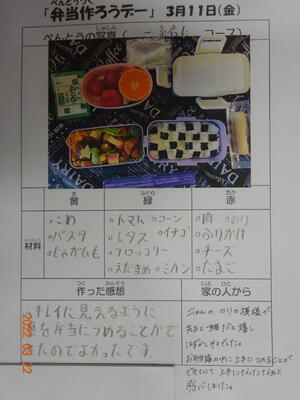 べんとうつく
「弁当作ろうデー」 3月11日(金)
べんとうの写真( 一緒に コース)
しゃしん
COFFEE
DAIRY
き みどり あか
黄 緑 赤
材料
ざいりょう
○こめ
○パスタ
○じゃがいも
○トマト ○コーン
○レタス ○イチゴ
○ブロッコリー
○えだまめ ○ミカン
○肉 ○のり
○ふりかけ
○チーズ
○たまご
つく かんそう
作った感想
いえ ひと
家の人から
キレイに見えるように
弁当につめることがで
きたのでよかったです。
ごはんの のりの模様が
先生と一緒だと嬉し
お弁当箱の中に上手につめることが
できていて上手になったなぁと
感心しました。
2022 03 22